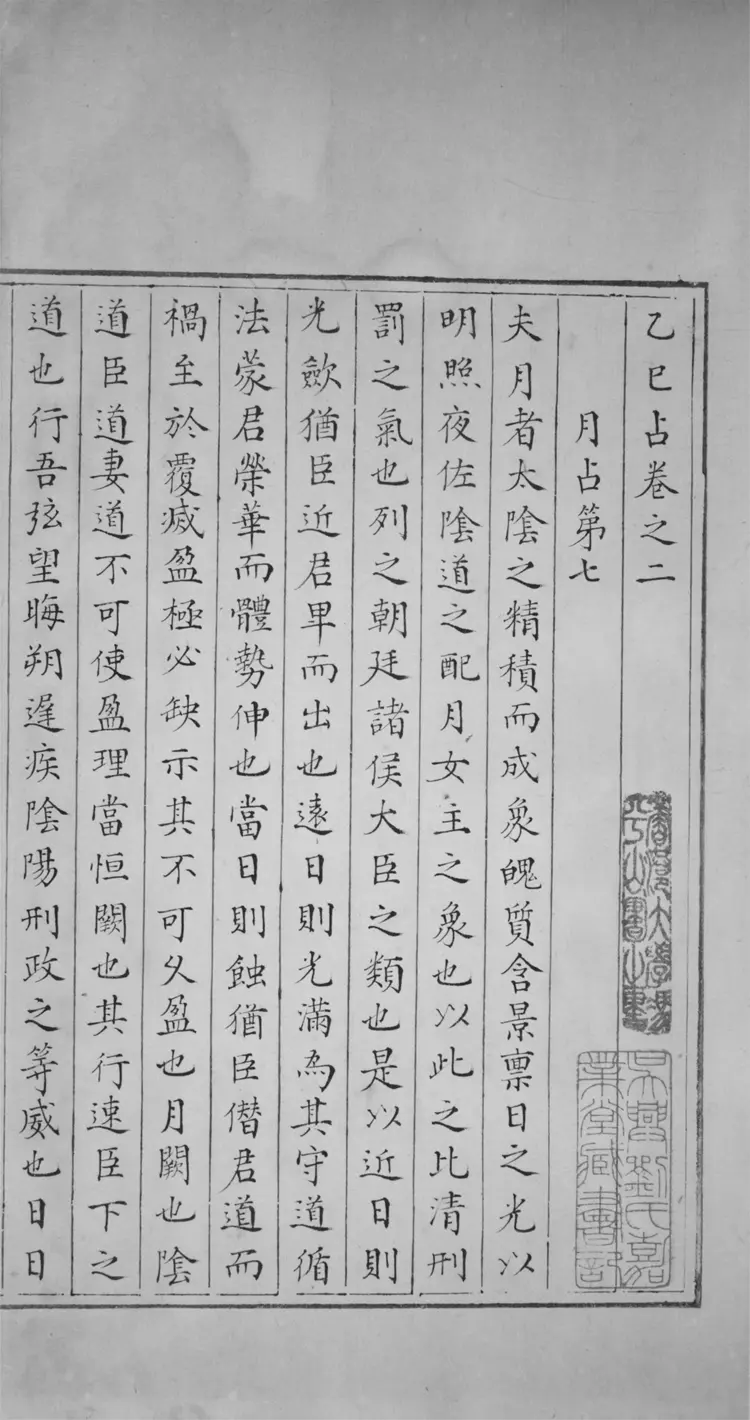 乙巳占卷之二
月占第七
夫月者太陰之精積而成象魄質含景禀日之光以
明照夜佐陰道之配月女主之象也以此之比清刑
罰之氣也列之朝廷諸侯大臣之類也是以近日則
光歛猶臣近君卑而出也遠日則光滿為其守道循
法蒙君榮華而體勢伸也當日則蝕猶臣僭君道而
禍至於覆烕盈極必缺示其不可久盈也月闕也陰
道臣道妻道不可使盈理當恒闕也其行速臣下之
道也行吾弦望晦朔遲疾陰陽刑政之等威也日日
吳興劉氏嘉
業堂藏書記